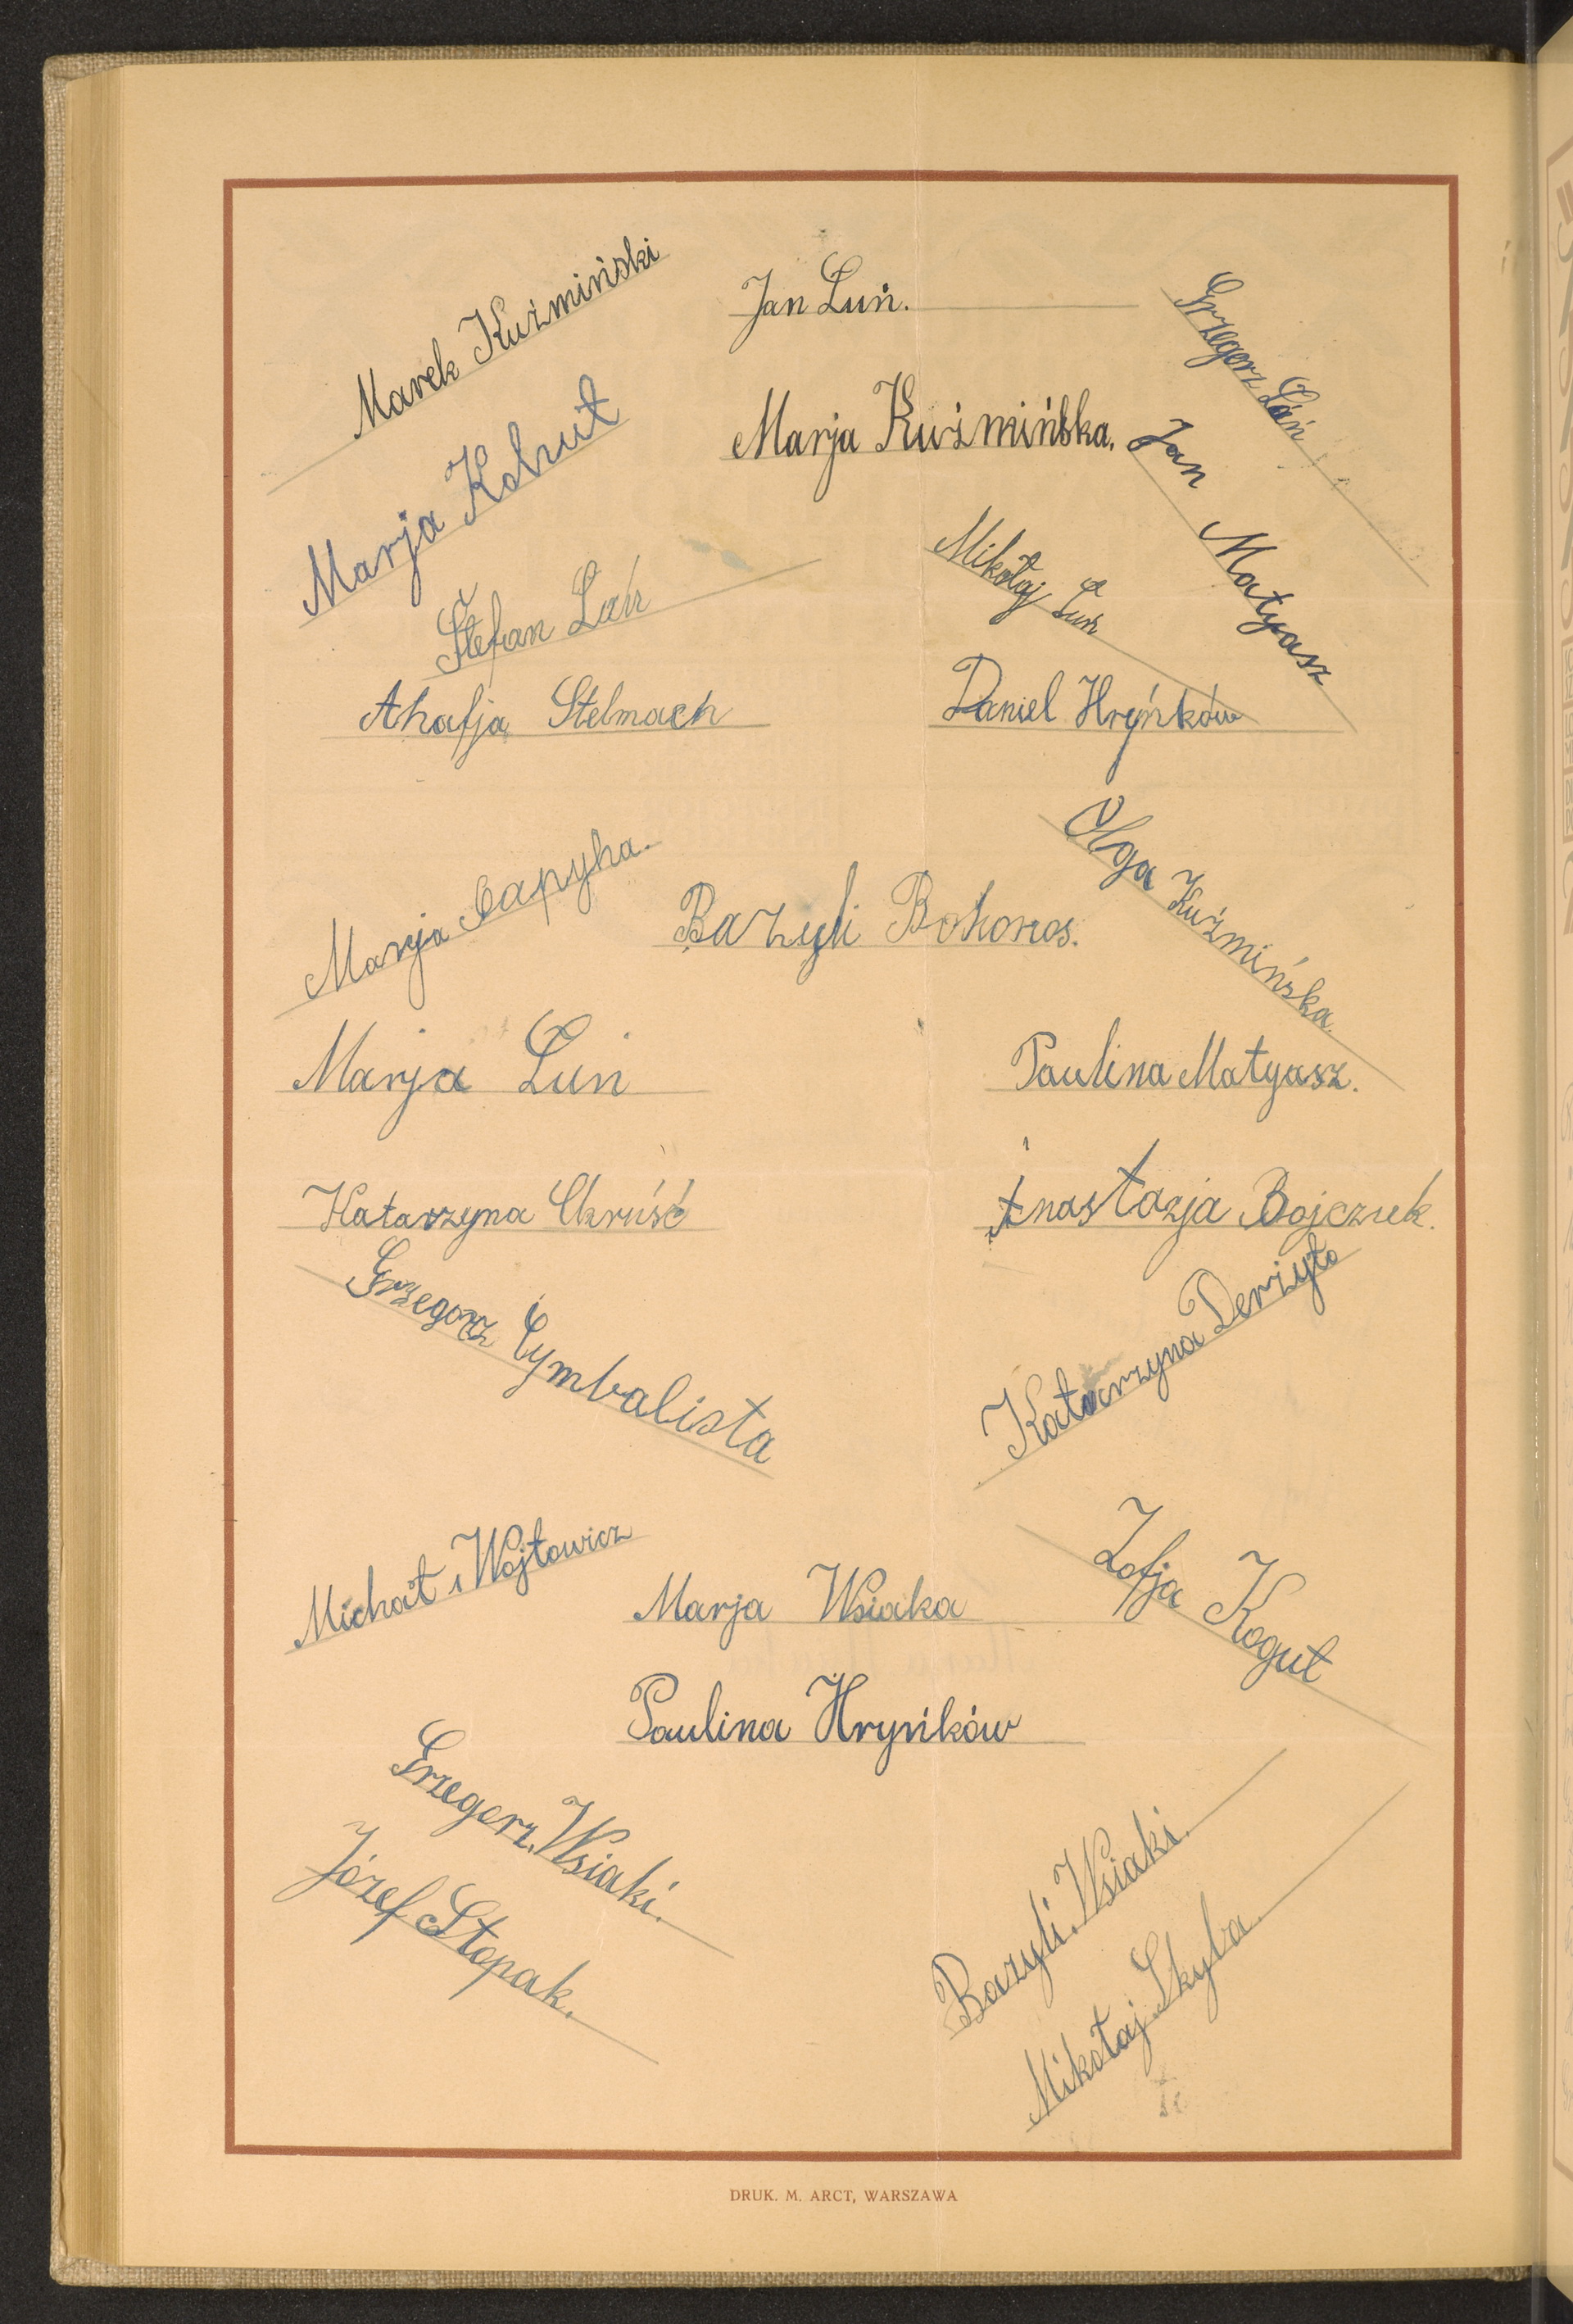 Marek Kuźmiński
Jan Luń.
Grzegorz Łań
Marja Kohut
Marja Kuźmińska.
Jan Matyasz
Stefan Łań
Mikołaj Luń
Ahafja Stelmach
Daniel Hryńków
Marja Capyha.
Bazyli Bohonos.
Olga Kuźmińska.
Marja Luń
Paulina Matyasz.
Katarzyna Chruść
Anastazja Bojczuk.
Grzegorz Cymbalista
Katarzyna Derżyło
Michał Wojtowicz
Marja Wsiaka
Zofja Kogut
Paulina Hryńków
Grzegorz Wsiaki.
Józef Stopak.
Bazyli Wsiaki.
Mikołaj Skyba.
DRUK. M. ARCT, WARSZAWA